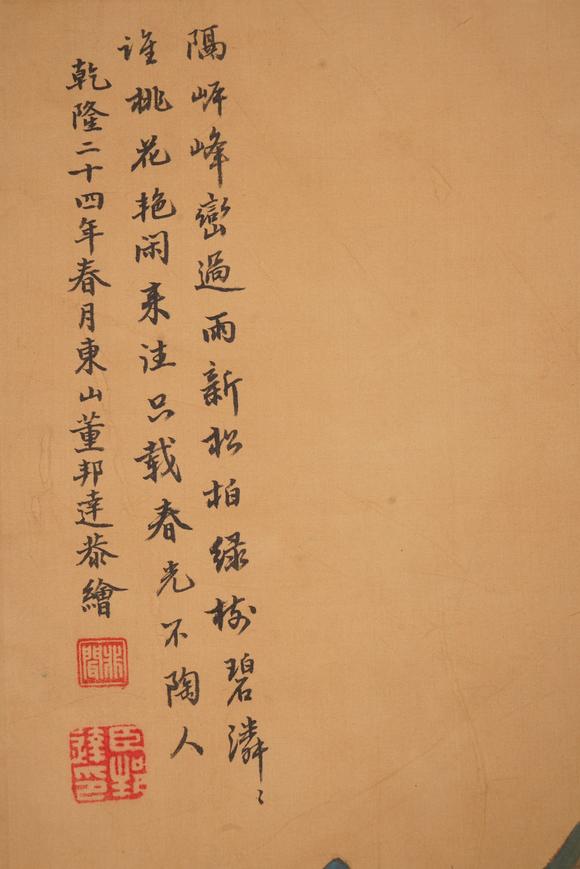 隔岸峰巒過雨新松柏緑樹碧潾〻
誰桃花艳閑来只载春光不陶人
乾隆二十四年春月東山董邦達恭繪
非聞
臣邦達印